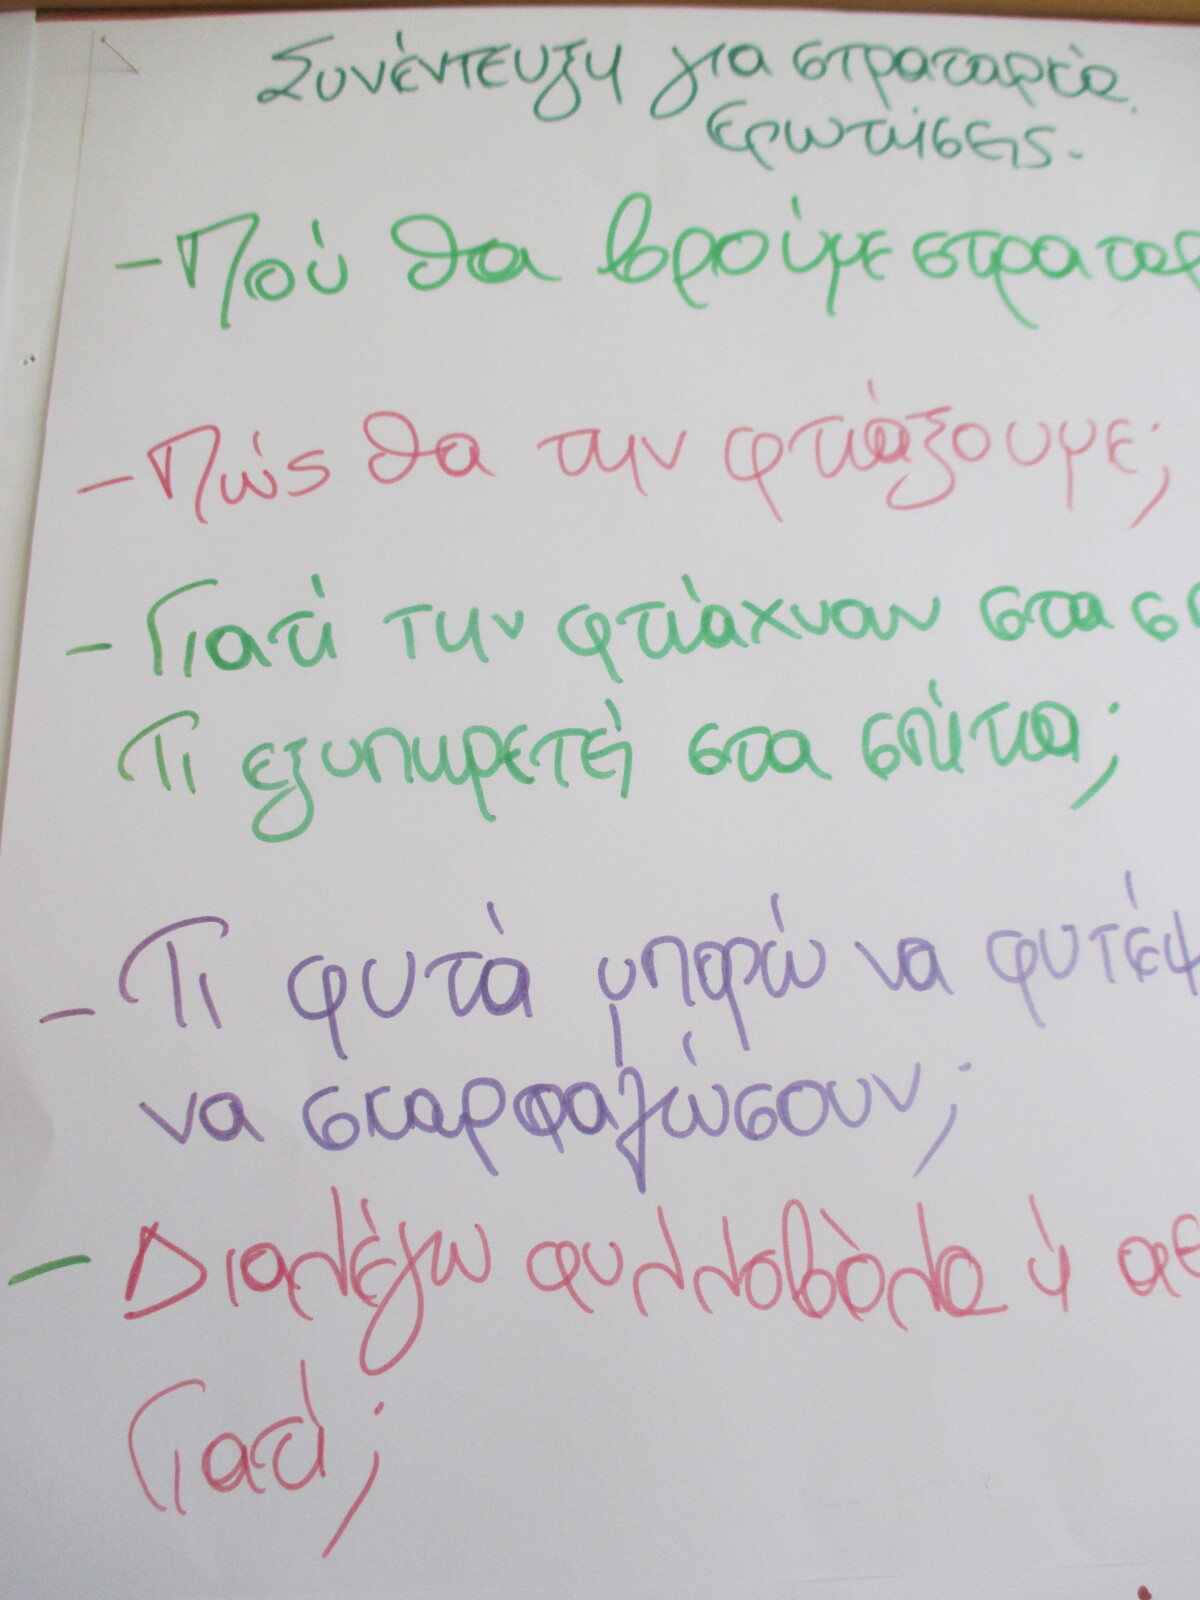 Συνέντευξη για στραταριά.
Ερωτήσεις.
- Πού θα βρούμε στραταρ
- Πώς θα την φτιάξουμε;
- Γιατί την φτιάχναν στα σπ
Τι εξυπηρετεί στα σπίτια;
- Τι φυτά μπορώ να φυτέψ
να σκαρφαλώσουν;
- Διαλέγω φυλλοβόλα ή αε
Γιατί;